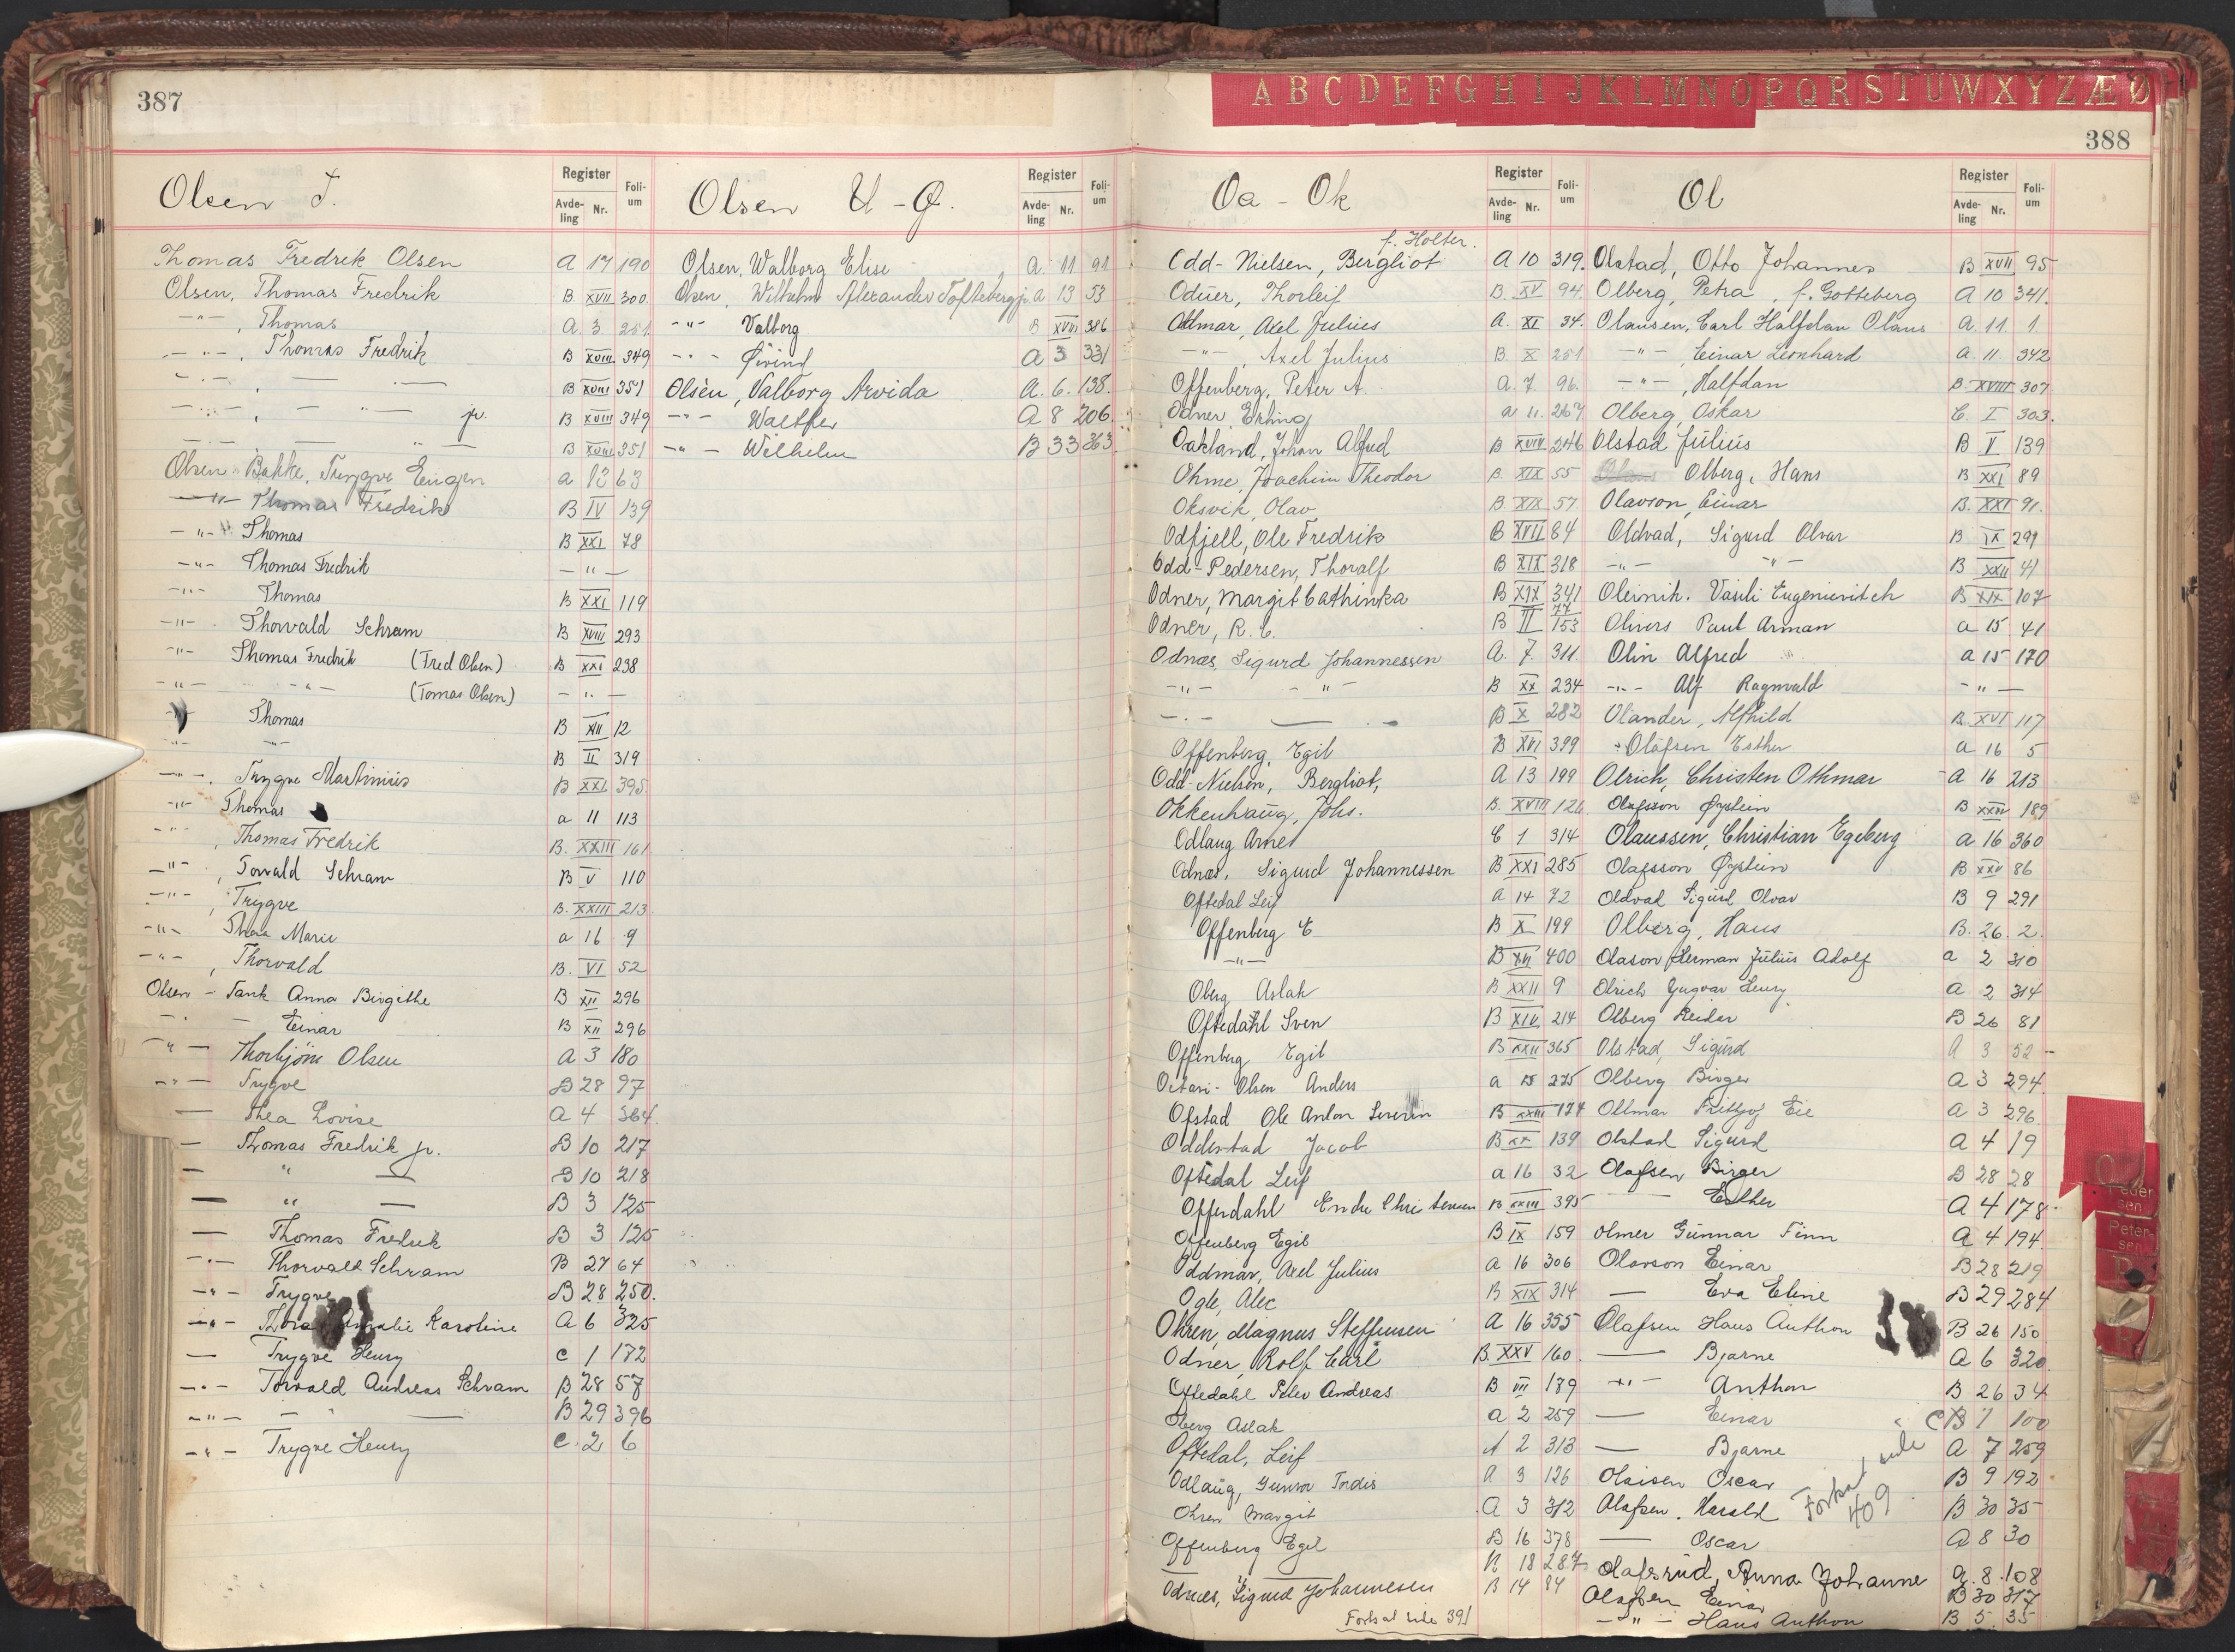 387
Olsen T.
Register
Avde-ling Nr.
Foli-um
Thomas Fredrik Olsen A 17 190
Olsen, Thomas Fredrik B XVII 300
-"- , Thomas A. 3 251
-"- , Thomas Fredrik B XVIII 349
-"- , -"- B XVIII 351
-"- , -"- jr. B XVIII 349
-"- -"- B XVIII 351
Olsen Bakke, Trygve Eugen a 12 63
-"- Thomas Fredrik B IV 139
-"- Thomas B XXI 78
-"- Thomas Fredrik -"-
-"- Thomas B XXI 119
-"- Thorvald Schram B XVIII 293
-"- Thomas Fredrik (Fred Olsen) B XXI 238
-"- -"- (Tomas Olsen) -"-
Thomas B XII 12
-"- -"- B II 319
-"- , Trygve Martinius B XXI 395
-"- Thomas a 11 113
-"- , Thomas Fredrik B. XXIII 161
-"- , Torvald Schram B V 110
-"- , Trygve B. XXIII 213
-"- Thea Marie a 16 9
-"- , Thorvald B. VI 52
Olsen - Tank Anna Birgithe B XII 296
-"- - Einar B XII 296
-"- Thorbjörn Olsen A 3 180
-"- Trygve B 28 97
— Thea Lovise A 4 364
— Thomas Fredrik jr. B 10 217
— " — B 10 218
— " — B 3 125
— Thomas Fredrik B 3 125
-"- Thorvald Schram B 27 64
-"- Trygve B 28 250.
-"- Amalie Karoline A 6 325
— Trygve Henry C 1 172
-"- Torvald Andreas Schram B 28 57
-"- - " — B 29 396
-"- Trygve Henry C. 2 6
Olsen U - Ø.
Register
Avde-ling Nr.
Foli-um
Olsen, Walborg Elise A. 11 91
Olsen, Wilhelm Alexander Toftebergjr. A 13 53
-"- Valborg B XVIII 386
-"- Øivind A 3 331
Olsen, Valborg Arvida A. 6. 138.
-"- Walther A 8 206.
-"- Wilhelm B 33 363
A B C D E F G H I J K L M N O P Q R S T U W X Y Z Æ Ø
388
Oa - Ok
Register
Avde-ling Nr.
Foli-um
f. Holter.
Odd-Nielsen, Bergliot A 10 319.
Odner, Thorleif B. XV 94.
Oddmar, Axel Julius A. XI 34.
-"- , Axel Julius B. X 251
Offenberg, Peter A. A. 7. 96.
Odner, Erling a 11. 267
Oakland, Johan Alfred B XVIII 246
Ohme, Joachim Theodor B. XIX 55
Oksvik, Olav B. XIX 57
Odfjell, Ole Fredrik B XVII 84
Odd-Pedersen, Thoralf B XIX 318
Odner, Margit Cathinka B XIX 341
77
Odner, R. C. B II 153
Odnæs, Sigurd Johannessen A. 7. 311.
-"- -"- B XX 234
-"- — B X 282
Offenberg, Egil B XVI 399
Odd-Nielsen, Bergliot, A 13 199
Okkenhaug, Johs. B. XVIII 126
Odlaug Arne C 1 314
Odnæs, Sigurd Johannessen B XXI 285
Oftedal Leif A 14 72
Offenberg E B X 199
-"- B XVI 400
Oberg Aslak B XXII 9
Oftedahl Sven B XIV 214
Offenberg Egil B XXII 365
Octavi-Olsen Anders a 15 275
Ofstad Ole Anton Severin B XXIII 174
Odderstad Jacob B XX 139
Oftedal Leif a 16 32
Offerdahl Endre Christensen B XXIII 395
Offenberg Egil B IX 159
Oddmar, Axel Julius a 16 306
Ogle, Alec B XIX 314
Ohren, Magnus Steffensen A 16 355
Odner, Rolf Carl B. XXV 160
Oftedahl Peter Andreas B VII 189
Oberg Aslak a 2 259
Oftedal, Leif A 2 313
Odlaug, Gunvor Tordis A 3 126
Ohren Margit A 3 312
Offenberg Egil B 16 378
B 18 287
Odnæs, Sigurd Johannesen B 14 84
Forts at side 391
Ol
Register
Avde-ling Nr.
Foli-um
Olstad, Otto Johannes B XVII 95
Olberg, Petra, f. Gotteberg A 10 341.
Olausen, Carl Halfdan Olaus A. 11. 1.
-"- , Einar Leonhard a. 11 342
-"- , Halfdan B. XVIII 307
Olberg, Oskar C. I 303.
Olstad Julius B V 139
Olberg, Hans B XXI 89
Olavson, Einar B. XXI 91.
Oldvad, Sigurd Olvar B IX 291
-"- -"- B XXII 41
Oleinik. Vasili Eugenievitch B XIX 107
Olivers Paul Arman a 15 41
Olin Alfred a 15 170
-"- Alf Ragnvald -"-
Olander, Alfhild B. XVI 117
Olafsen Esther a 16 5
Olrich, Christen Othmar A 16 213
Olafsson Øystein B XXIV 189
Olaussen, Christian Egeberg a 16 360
Olafsson Øystein B XXV 86
Oldvad Sigurd Olvar B 9 291
Olberg, Hans B. 26. 2.
Olason Herman Julius Adolf a 2 310
Olrich Yngvar Henry A 2 314
Olberg Reidar B 26 81
Olstad, Sigurd A 3 52 -
Olberg Birger A 3 294
Ollmar Fritjof Eie A 3 296
Olstad Sigurd A 4 19
Olafsen Birger B 28 28
— Esther A 4 178
Olmer Gunnar Finn A 4 194
Olavson Einar B 28 219
— Eva Eline B 29 284
Olafsen Hans Anthon B 26 150
— Bjarne A 6 320
-"- Anthon B 26 34
— Einar C 1 100
— Bjarne A 7 259
Olaisen Oscar B 9 192
Olafsen. Harald B 30 35
— Oscar A 8 30
Olafsrud, Anna Johanne A. 8. 108
Olafsen Einar B 30 317
-"- Hans Anthon B 5 35
Forts. side 409
O
Peder-sen
Peter-sen
P
R